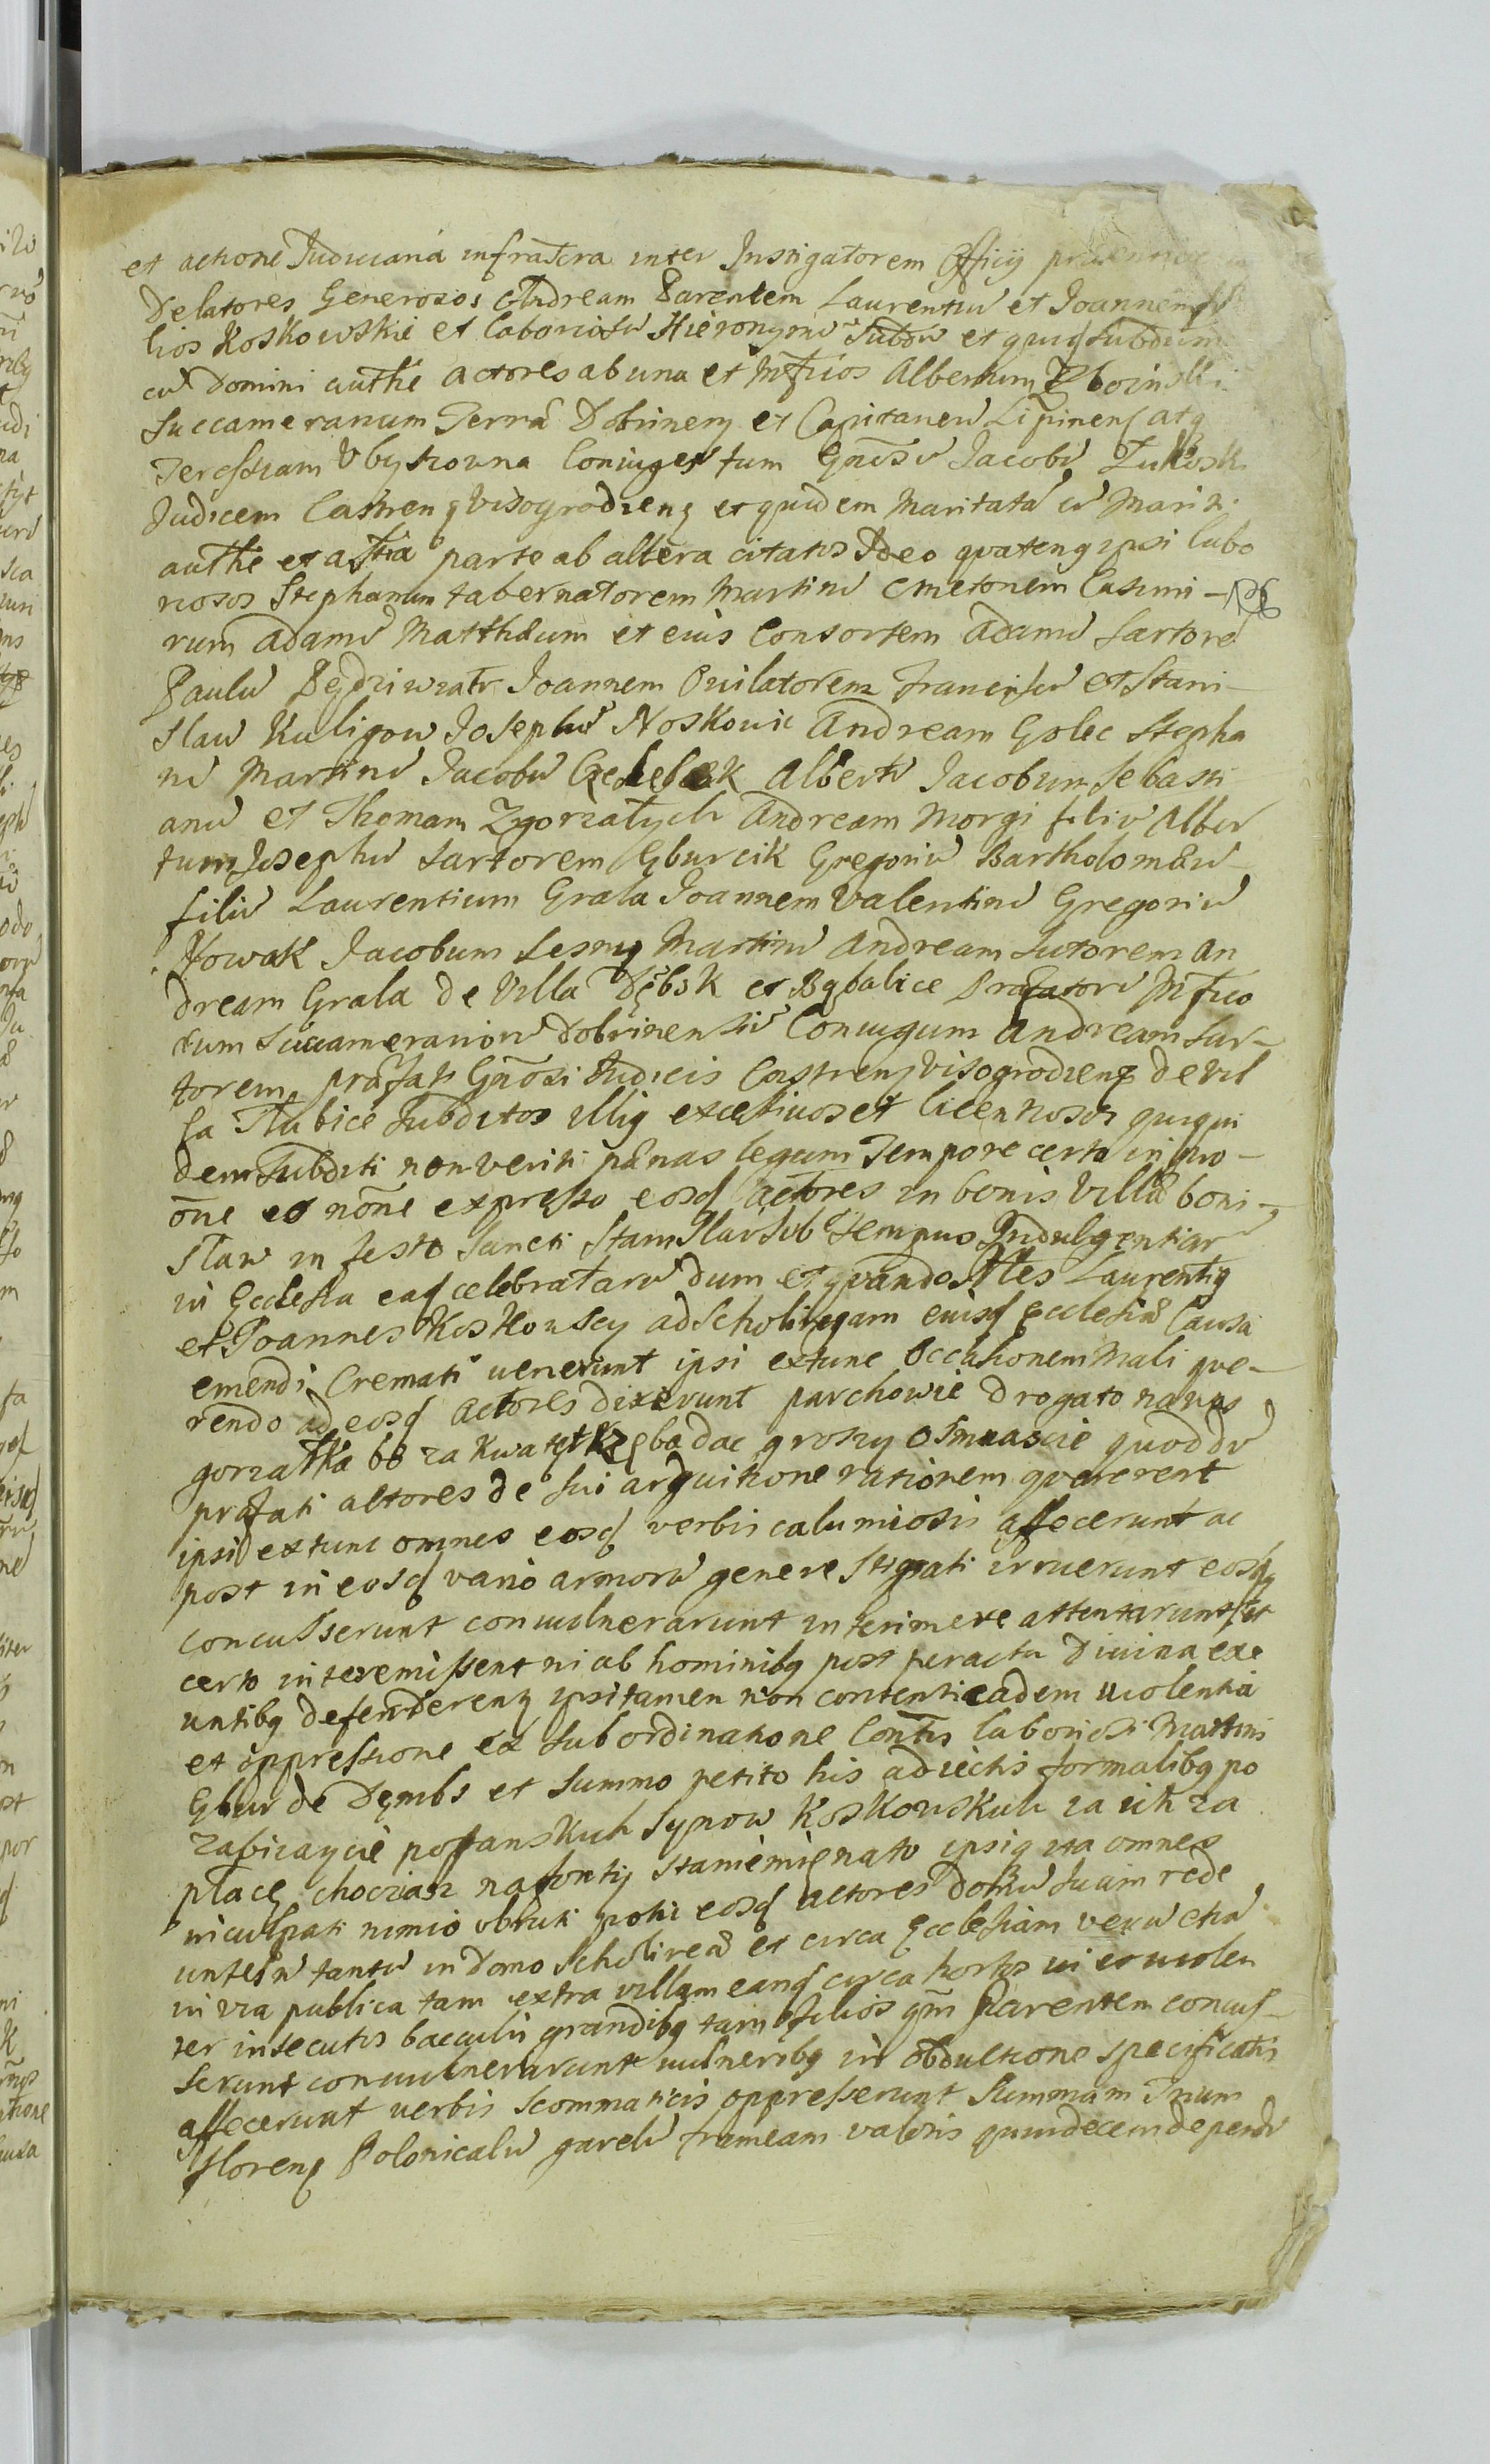 et actione Judiciaria infrascra inter Instigatorem Officij
Delatores Generosos Andream Parentem Laurentiū et Joannem fi
lios Koskowskie et laboriosū Hieronymū Subdū et quoq subdum
cū Domini authē actores ab una et Mfficos Albertum Zboinski
Succameranum Terræ Dobrinenş et Capitaneū Lipinenş atq
Teressiam Vbyszowna Coniuges tum Gnosū Jacobū Zukosk
Judicem Castrenş Visogrodienş et quidem Maritatā cū Mariti
authē et assia parte ab altera citatos Ideo quatenq ipsi labo
riosos Stephanum tabernatorem Martinū Cmetonem Casimi-
rum Adamū Matthæum et eius Consortem Adamū Sartorē
Paulū Joannem Ovilatorem Franciscū et Stani-
slaū Kuligow Josephū Noskowic Andream Golec Stepha
nū Martinū Jacobū Albertū Jacobum Sebasti
anū et Thomam Zgorzałych Andream Morgi filiū Alber
tum Josephū Sartorem Gburcik Gregoriū Bartholomæū
filiū Laurentium Grala Joannem Valentinū Gregoriū
Nowak Jacobum Lesny Martinū Andream Sutorem An
dream Grala de Villa Dębsk et Bąbalice Præfatorū Mfico
rum Succamerariorū Dobrinensiū Coniugum Andream Sar-
torem præfati Gnosi Judicis Castrenş Visogrodienş de Vil
la Słubice Subditos illiq excessivos et licentiosos quiqui
dem Subditi non veriti pænas legum Tempore certo in pro-
one eo none expresso eosq actores in bonis Villæ boni-
slaw in festo Sancti Stanislai sub tempus Indulgentiarū
in Ecclesia eaq celebratarū dum et quando Laurentiq
et Joannes Koskowscy ad Scholiregam eiusq Ecclesiæ Causa
emendi Cremati uenerunt ipsi extunc occasionem Mali quæ-
rendo ad eosq actores dixerunt parchowie drogato na was
gorzałka bo za kwaterkę trzeba dac groszy osmnascie quod dū
præfati actores de sui arguitione rationem quærerent
ipsi extunc omnes eosq verbis calumiosis affecerunt ac
post in eosq vario armorū genere stipati irruerunt eosq
concusserunt convulnerarunt interimere attentarunt et
certo interemissent ni ab hominibq post peracta divina exe
untibq defenderenş ipsi tamen non contenti eadem uiolentia
et oppressione ex subordinatione Contis laboriosi Martini
Gbur de Dęmbs et summo petito his adiectis formalibq po
zabiiaycie poganskich synow Koskowskich za ich za
płacę chociasz na fontij staniemi ępato ipsiq ita omnes
inculpati nimio obruti potu eosq actores domū suam rede
untes ñ tantū in domo Scholiregæ et circa Ecclesiam verū etiā
in via publica tam extra villam eanq circa hortos ui et uiolen
ter insecutos bacculis grandibq tam filios qm Parentem concus-
serunt convulnerarunt uulneribq in obductione specificatis
affecerunt verbis scommaticis oppresserunt Summam Trium
florenş Polonicaliū gareli frameam valoris quindecem de pendū